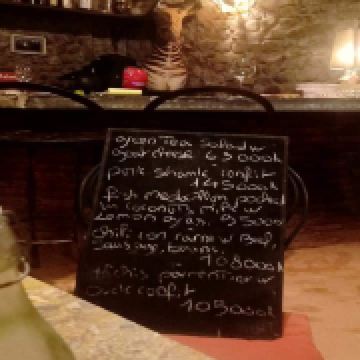 green Tea Salad w
goat cheese 6500ak
pork shank confit
14500ak
fish medallion poached
in coconuts milk w
Lemon grass 9500
chili con carne w Beef,
Sausage, beans
10800ak
w
duck confit
10500ak